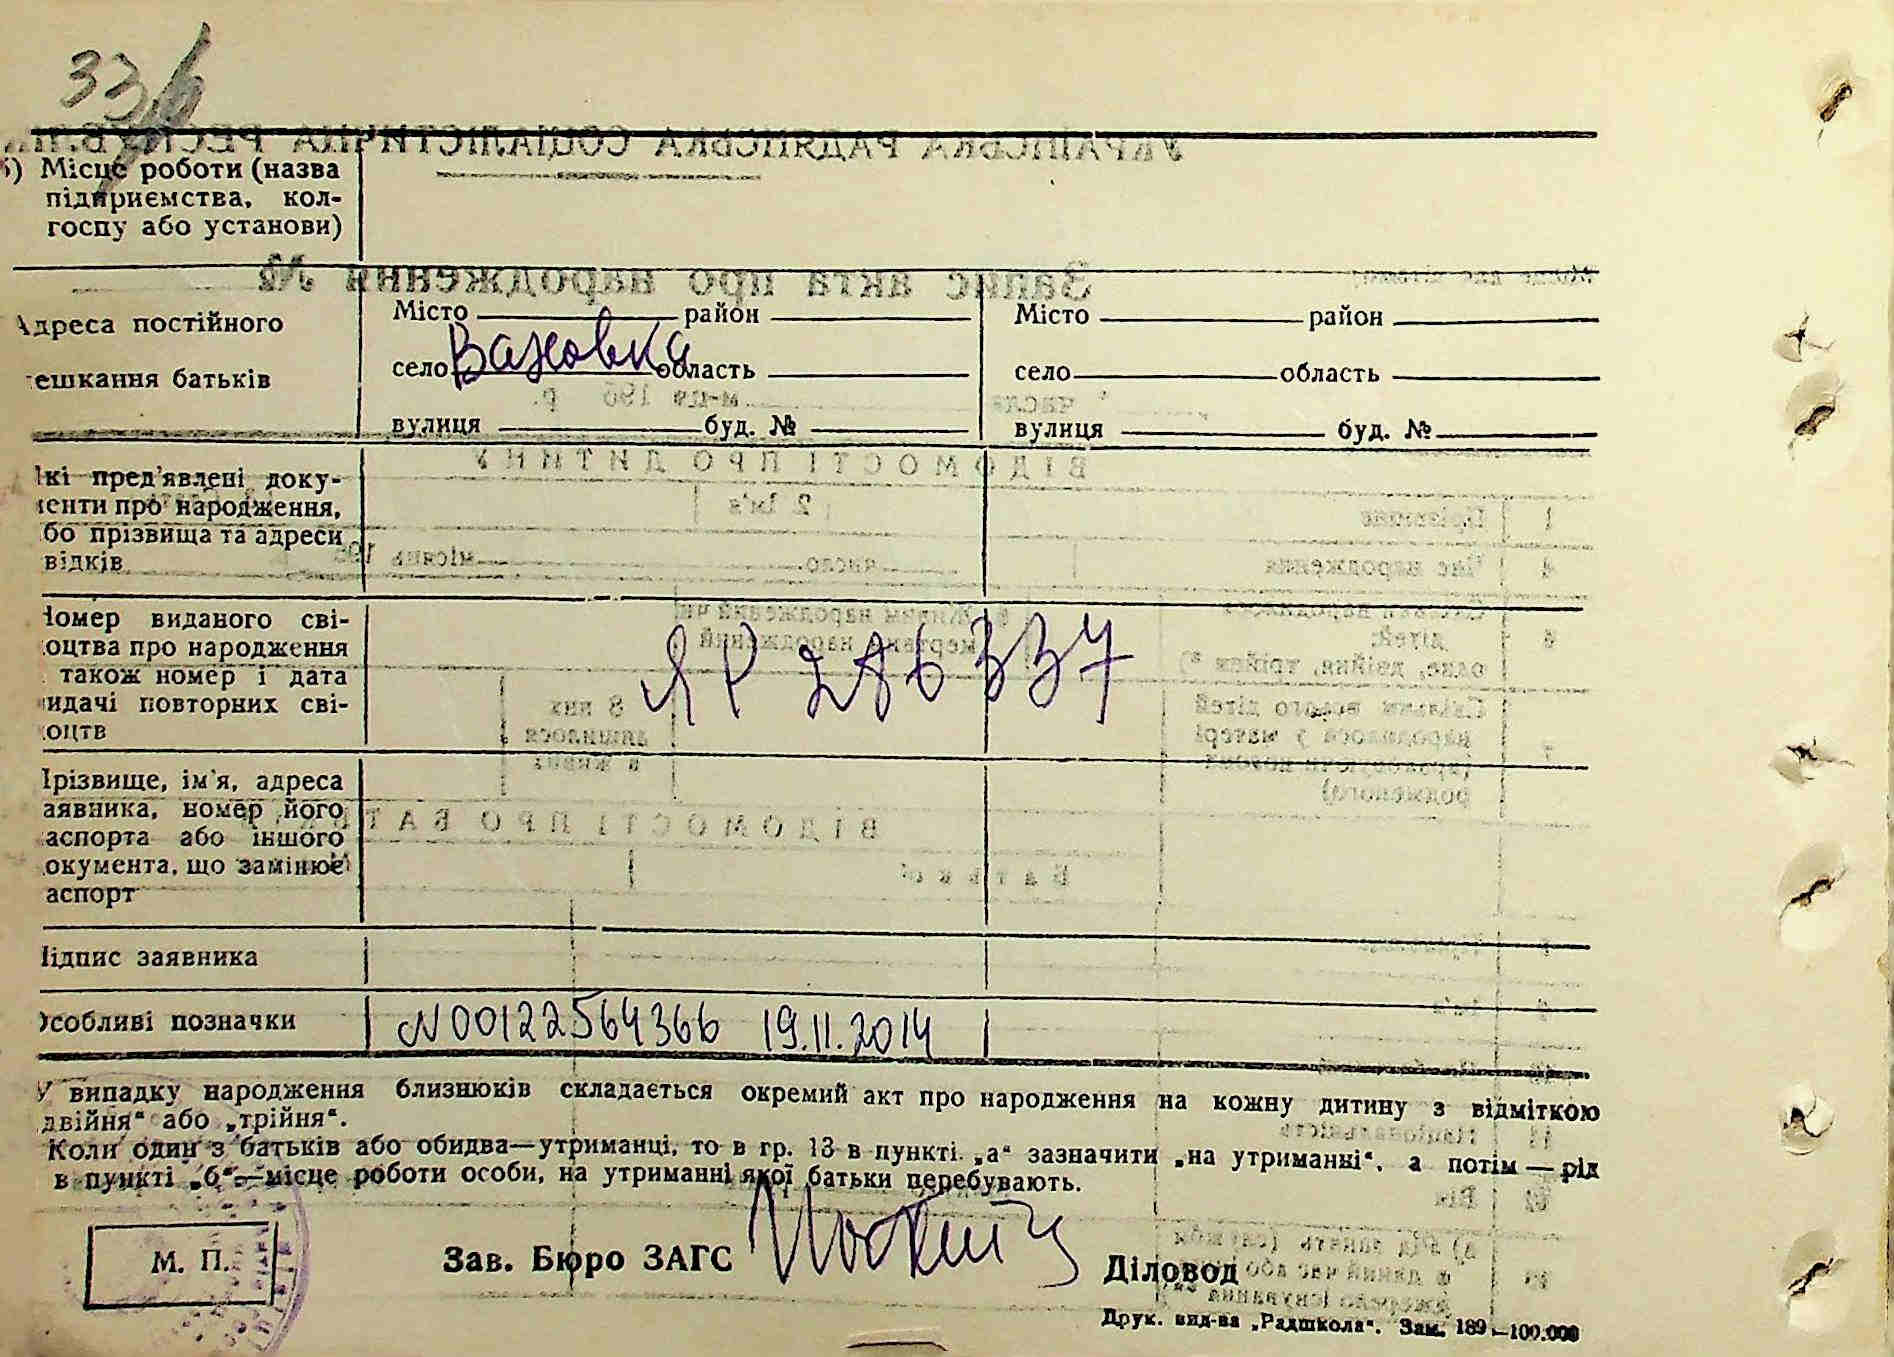 336
б) Місце роботи (назва
підприємства, кол-
госпу або установи)
Адреса постійного
мешкання батьків
Місто район
село область
вулиця буд. №
Місто район
село область
вулиця буд. №
Які пред'явлені доку-
менти про народження,
або прізвища та адреси
свідків
Номер виданого сві-
доцтва про народження
також номер і дата
видачі повторних сві-
доцтв
ЯР 286337
Прізвище, ім'я, адреса
заявника, номер його
паспорта або іншого
документа, що замінює
паспорт
Підпис заявника
Особливі позначки
N00122564366 19.11.2014
У випадку народження близнюків складається окремий акт про народження на кожну дитину з відміткою
„двійня“ або „трійня“.
Коли один з батьків або обидва—утриманці, то в гр. 13 в пункті „а“ зазначити „на утриманні“, а потім—рід
в пункті „б“—місце роботи особи, на утриманні якої батьки перебувають.
М. П.
Зав. Бюро ЗАГС
Діловод
Друк. вид-ва „Радшкола“. Зам. 189—100.000